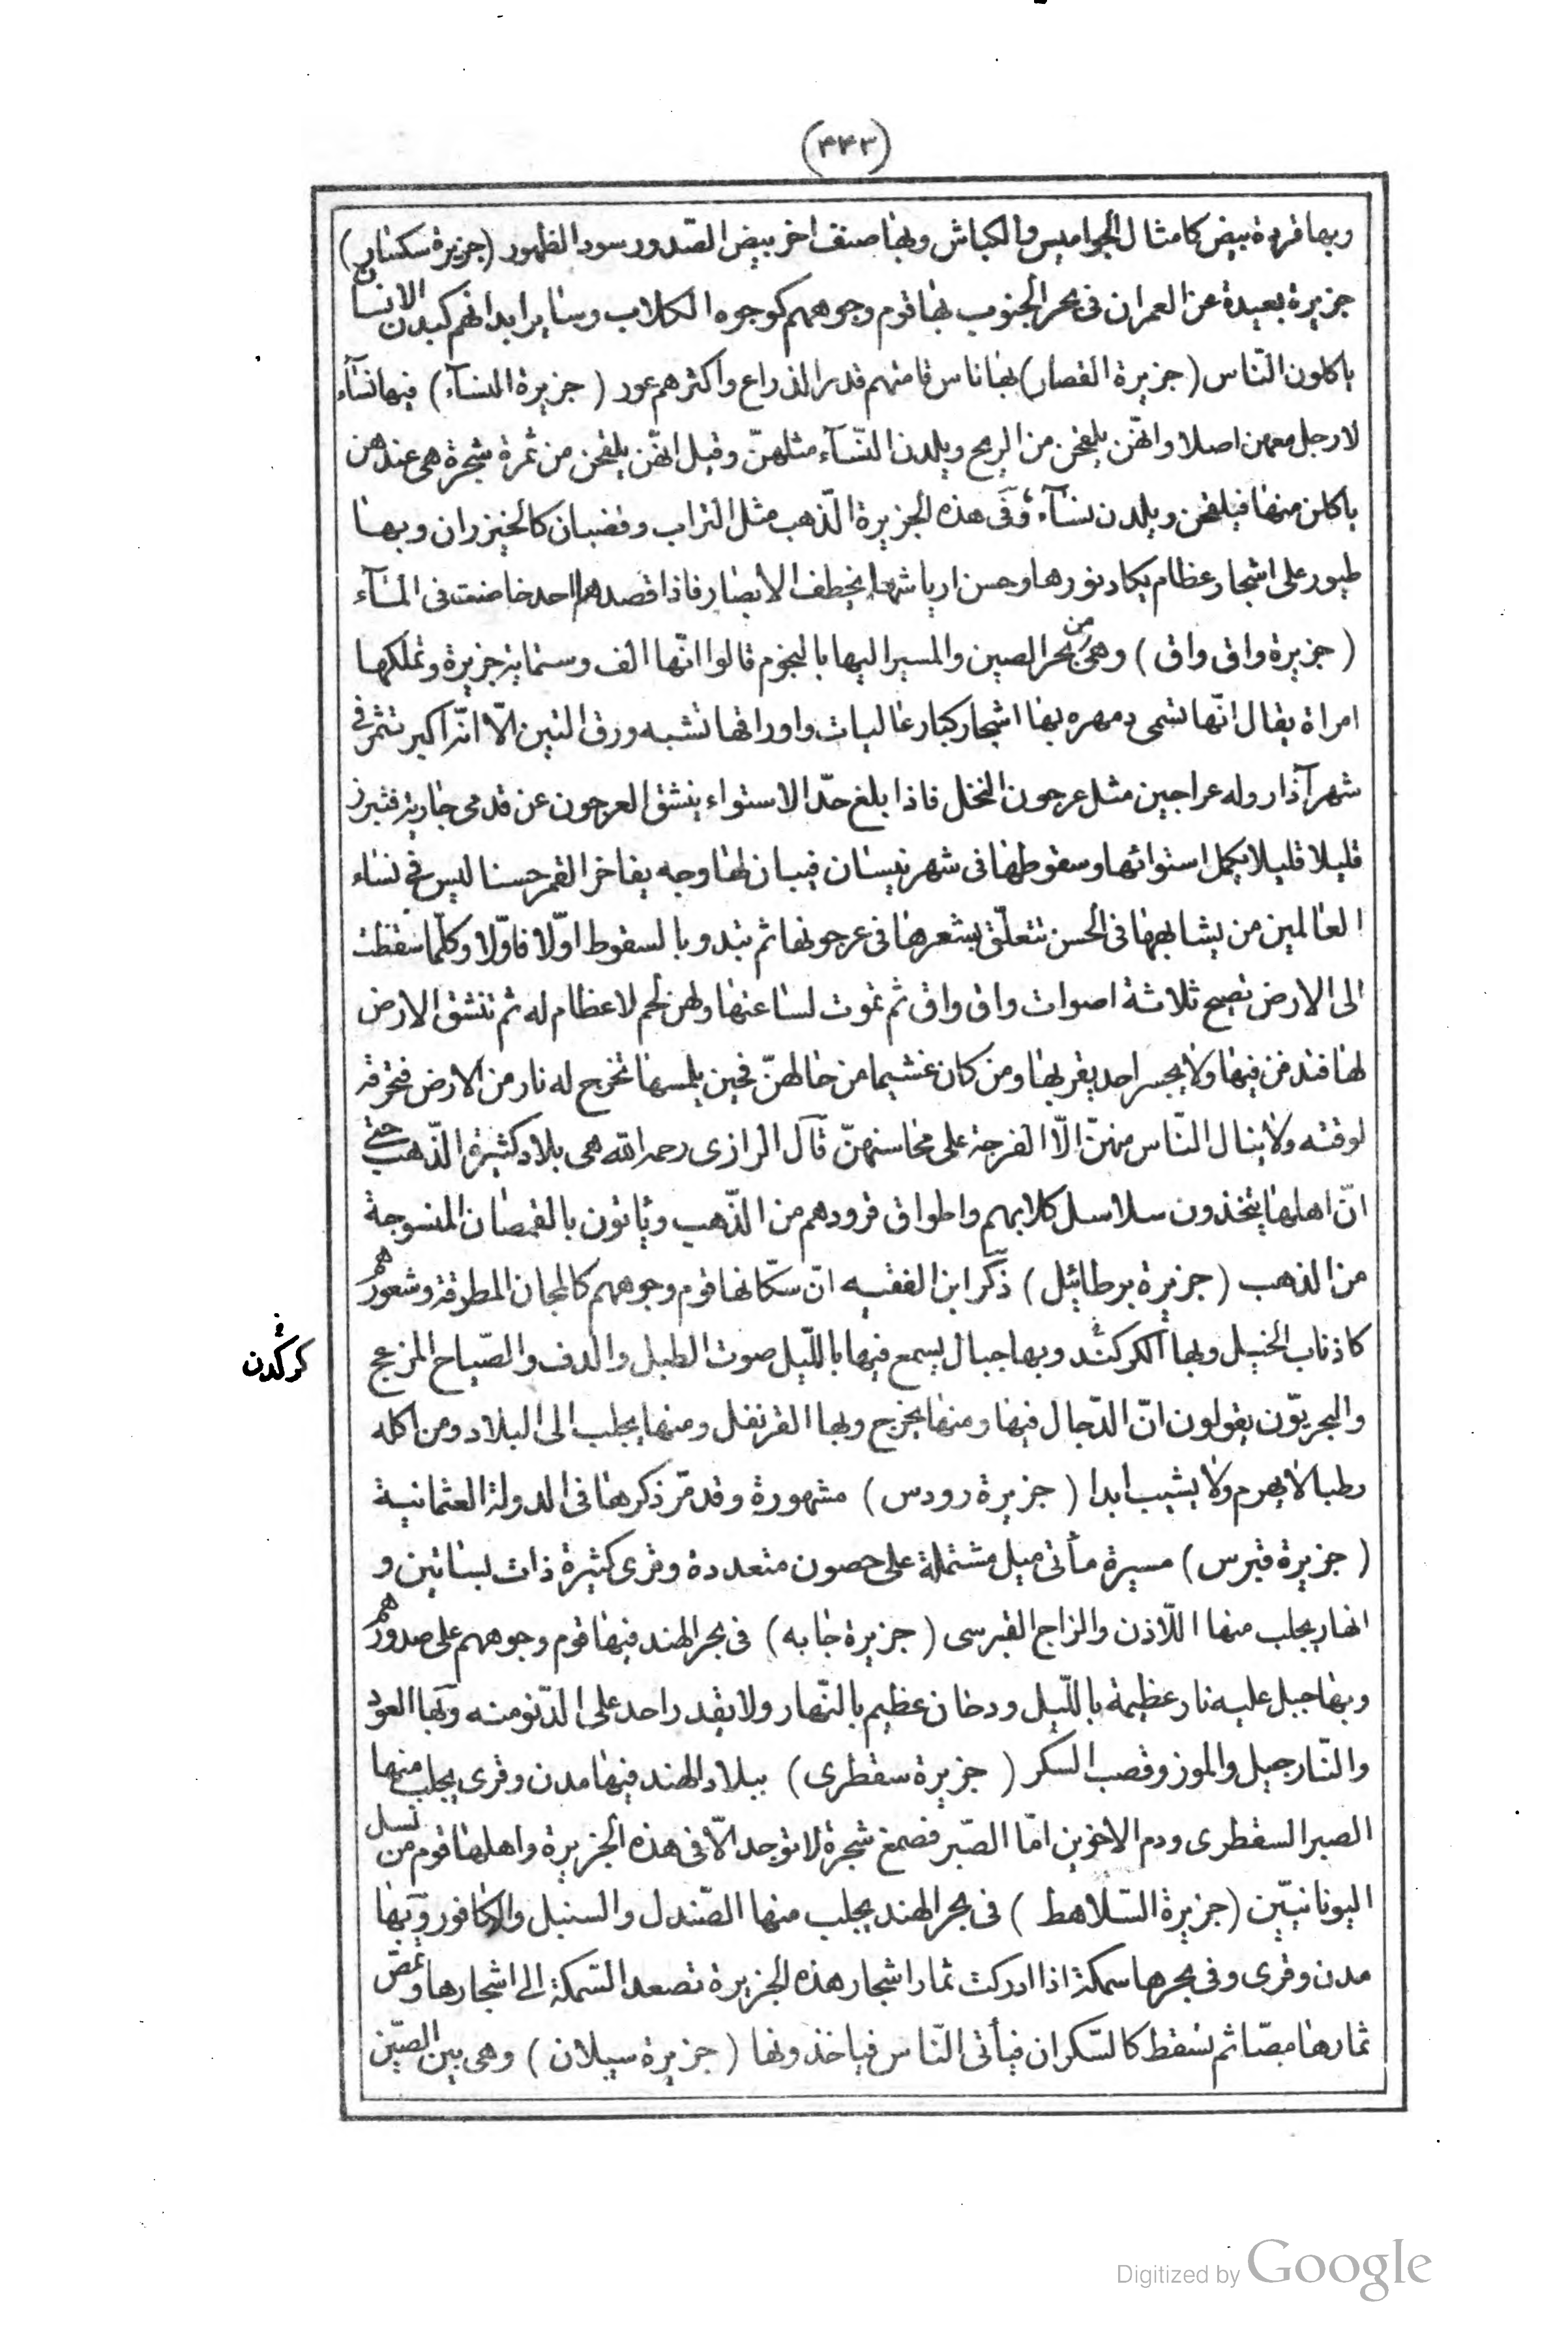 (٤٤٣)
وبها قردة بيض كامثال الجواميس والكباش وبها صنف اخر بيض الصّدور سود الظهور (جزيرة سكسار)
جزيرة بعيدة عن العمران فى بحر الجنوب بها قوم وجوههم كوجوه الكلاب وساير ابدانهم كبدن الانسان
ياكلون النّاس (جزيرة القصار) بها ناس قامتهم قدر الذراع واكثرهم عور (جزيرة النسآء) فيها نسآء
لا رجل معهن اصلا وانهّن يلقحن من الريح ويلدن النّسآء مثلهنّ وقيل انهّن يلقحن من ثمرة شجرة هى عندهن
ياكلن منها فيلقحن ويلدن نسآء وفى هذه الجزيرة الذّهب مثل التراب وقضبان كالخيزران وبها
طيور على اشجار عظام يكاد نورها وحسن ارياشها يخطف الابصار فاذا قصدها احد خاضت فى المآء
(جزيرة واق واق) وهى من بحر الصين والمسير اليها بالنجوم قالوا انّها الف وستماية جزيرة وتملكها
امراة يقال انّها تسمى دمهره بها اشجار كبار عاليات واوراقها تشبه ورق التين الّا انّه اكبر تثمر فى
شهر آذار وله عراجين مثل عرجون النخل فاذا بلغ حدّ الاستواء ينشق العرجون عن قدمى جارية فتبرز
قليلا قليلا يكمل استوائها وسقوطها فى شهر نيسان فيبان لها وجه يفاخر القمر حسنا ليس فى نساء
العالمين من يشابهها فى الحسن تتعلّق بشعرها فى عرجونها ثم تبدو بالسقوط اوّلا فاوّلا وكلّما سقطت
الى الارض تصيح ثلاثة اصوات واق واق ثم تموت لساعتها ولهن لحم لا عظام له ثم تنشق الارض
لها فتدفن فيها ولا يجسر احد يقربها ومن كان غشيما من حالهنّ فحين يلمسها تخرج له نار من الارض فتحرقه
لوقته ولا ينال النّاس منهنّ الّا الفرجة على محاسنهنّ قآل الرازى رحمه الله هى بلاد كثيرة الذّهب حتى
انّ اهلها يتخذون سلاسل كلابهم واطواق قرودهم من الذّهب وياتون بالقمصان المنسوجة
من الذهب (جزيرة برطائيل) ذكر ابن الفقيه انّ سكّانها قوم وجوههم كالمجان المطرقة وشعورهم
كاذناب الخيل وبها الكركند وبها جبال يسمع فيها بالليّل صوت الطبل والدف والصّياح المزعج
كركدن
والبحريّون يقولون انّ الدّجال فيها ومنها يخرج وبها القرنفل ومنها يجلب الى البلاد ومن اكله
رطبا لا يهرم ولا يشيب ابدا (جزيرة رودس) مشهورة وقد مّر ذكرها فى الدولة العثمانية
(جزيرة قبرس) مسيرة مأتى ميل مشتملة على حصون متعددة وقرى كثيرة ذات بساتين و
انهار يجلب منها اللّاذن والزاج القبرسى (جزيرة جابه) فى بحر الهند فيها قوم وجوههم على صدورهم
وبها جبل عليه نار عظيمة بالليّل ودخان عظيم بالنّهار ولا يقدر احد على الدّنو منه وبها العود
والنّارجيل والموز وقصب السكر (جزيرة سقطرى) ببلاد الهند فيها مدن وقرى يجلب منها
الصبر السقطرى ودم الاخوين امّا الصّبر فصمغ شجرة لا توجد الّا فى هذه الجزيرة واهلها قوم من نسل
اليونانييّن (جزيرة السّلاهط) فى بحر الهند يجلب منها الصّندل والسنبل والكافور وبها
مدن وقرى وفى بحرها سمكة اذا ادركت ثمار اشجار هذه الجزيرة تصعد السّمكة الى اشجارها وتمصّ
ثمارها مصّا ثم تسقط كالسّكران فيأتى النّاس فياخذونها (جزيرة سيلان) وهى بين الصّين
Digitized by Google